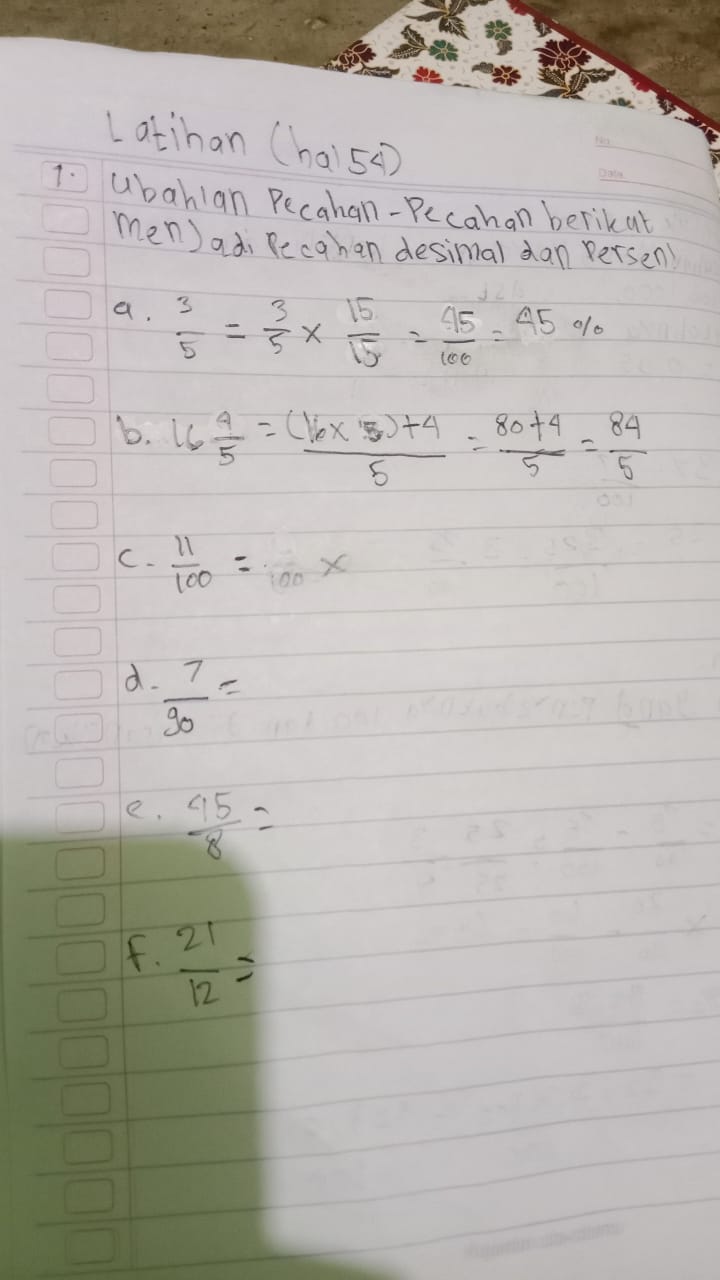 Latihan (hal 54)
No.
Date.
1. Ubahlan Pecahan-Pecahan berikut
menjadi Pecahan desimal dan Persen!
a. 3/5 = 3/5 x 15/15 = 45/100 = 45 %
b. 16 4/5 = (16x 5)+4/5 = 80+4/5 = 84/5
c. 11/100 = /100 x
d. 7/90 =
e. 45/8 =
f. 21/12 =